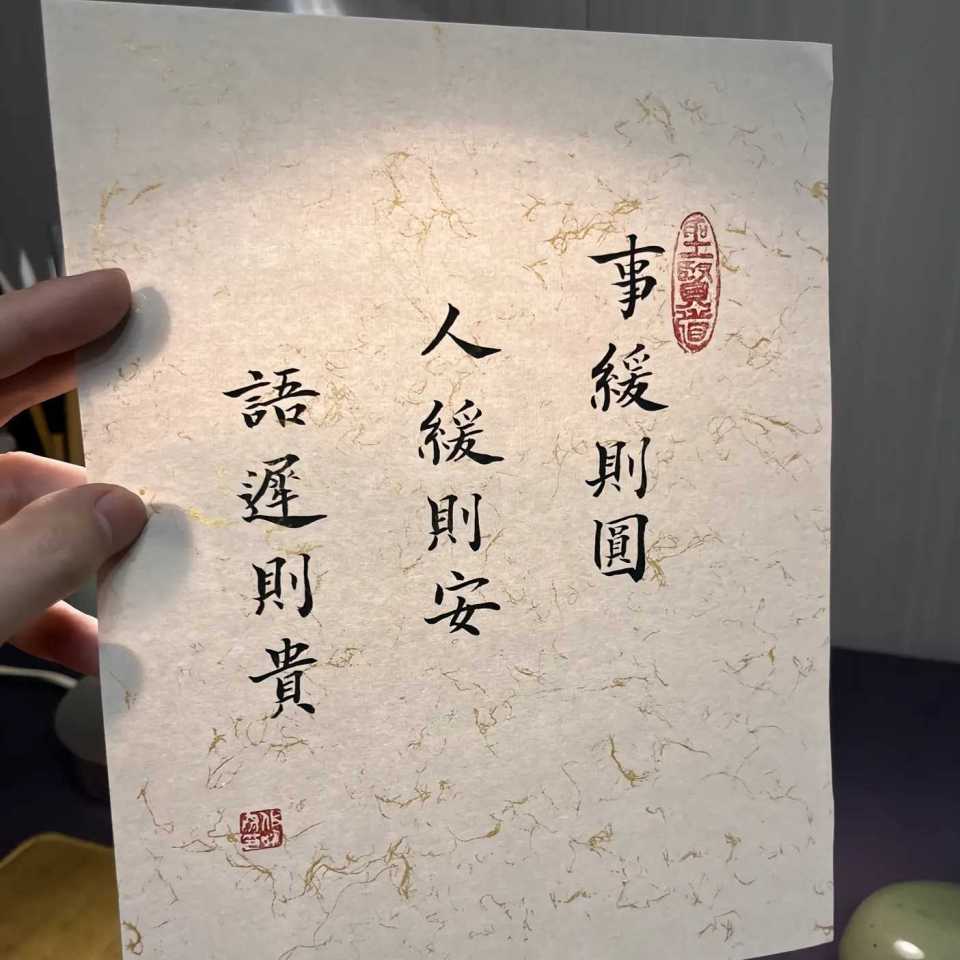 事緩則圓
人緩則安
語遲則貴
聖賢道